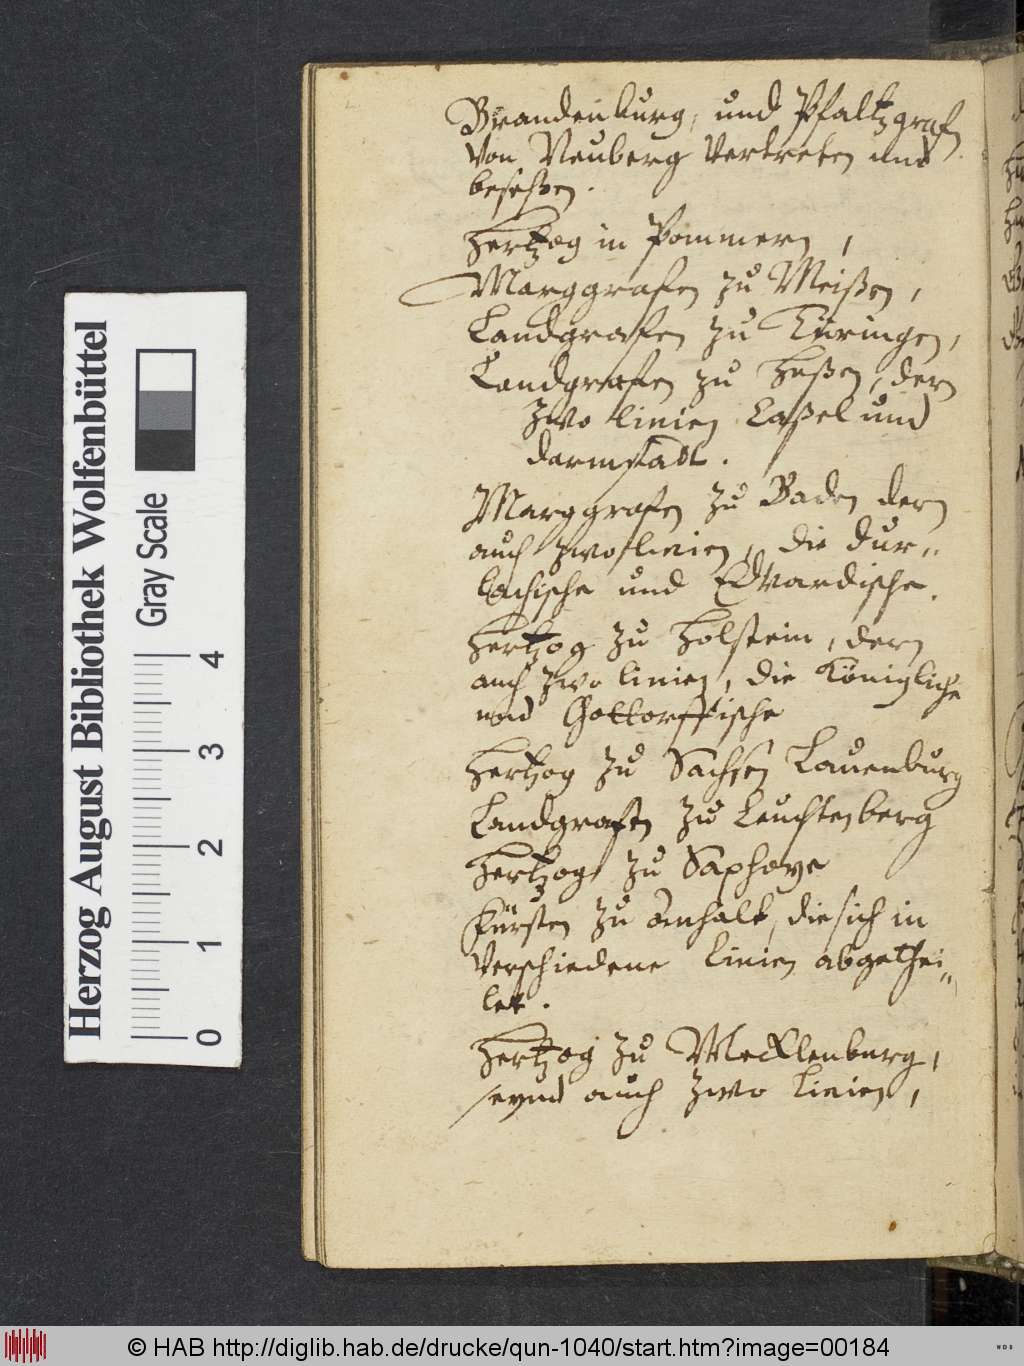 Brandenburg, und Pfaltzgrafn
von Neuberg vertreten und
beseßen.
Hertzog in Pommern,
Marggrafen zu Meißen,
Landgrafen zu Türingen,
Landgrafen zu Heßen, dern
zwo linien Caßel und
darmstadt.
Marggrafen zu Baden dern
auch zwo linien, die dur=
lachische und Edvardische.
Hertzog zu Holstein, dern
auch zwo linien, die Königliche
und Gottorffische
Hertzog zu Sachsen Lauenburg
Landgrafen zu Leuchtenberg
Hertzog zu Saphoye
Fürsten zu Anhalt, die sich in
verschiedene linien abgethei=
let.
Hertzog zu Mecklenburg,
seynd auch zwo linien,
Herzog August Bibliothek Wolfenbüttel
Gray Scale
0 1 2 3 4
© HAB http://diglib.hab.de/drucke/qun-1040/start.htm?image=00184